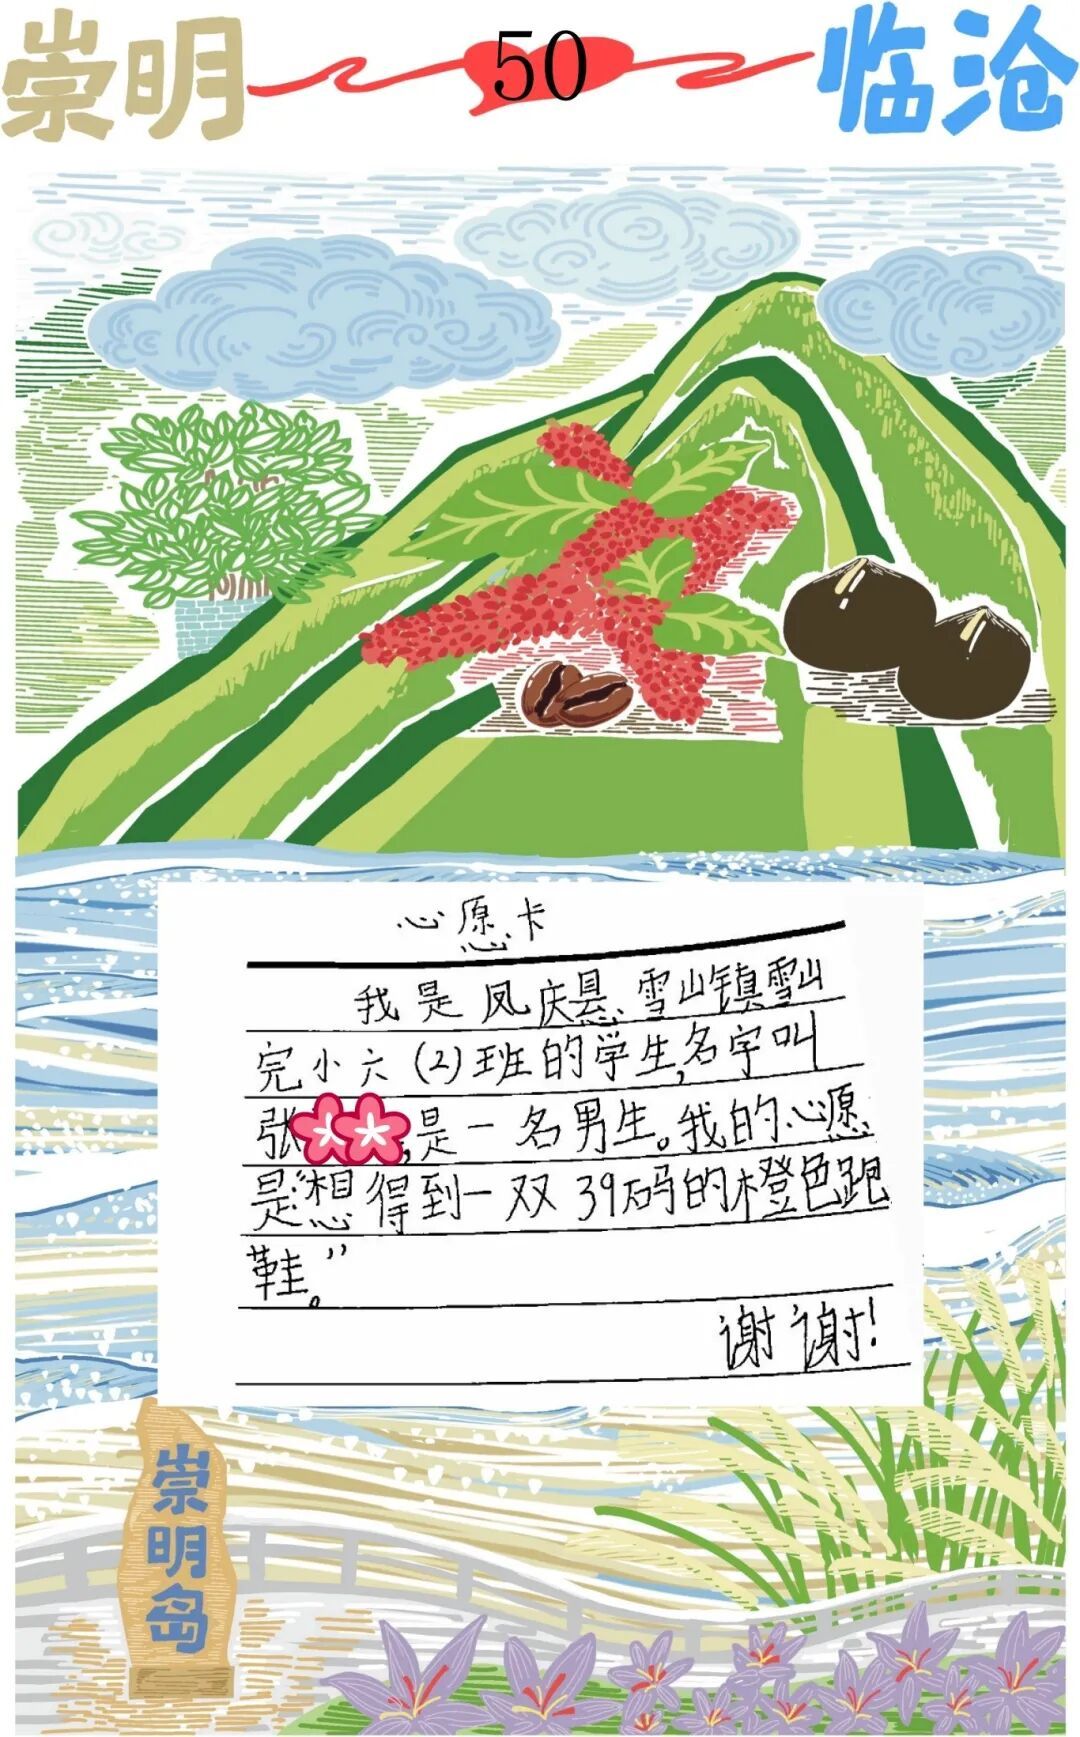 崇明 50 临沧
心愿卡
我是凤庆县雪山镇雪山
完小六(2)班的学生,名字叫
张,是一名男生。我的心愿
是“想得到一双39码的橙色跑
鞋。”
谢谢!
崇明岛